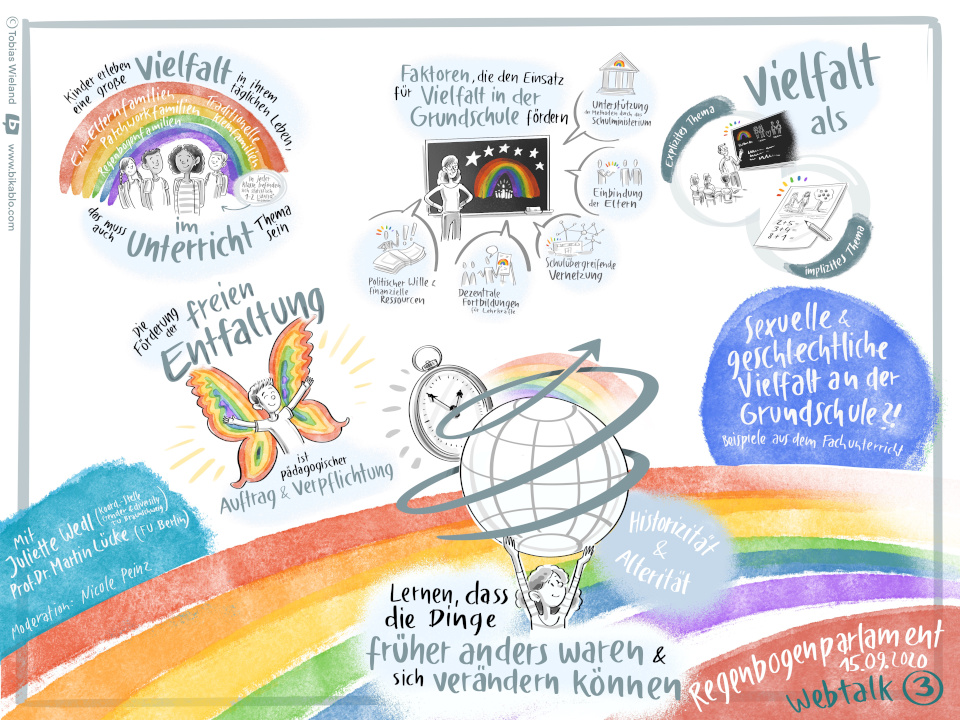 © Tobias Wieland
www.bikablo.com
Kinder erleben
eine große
Vielfalt
in ihrem
täglichen Leben,
Ein-Elternfamilien
Patchworkfamilien
Regenbogenfamilien
Traditionelle
Kleinfamilien
In jeder
Klasse befinden
sich
das muss
auch
im
Unterricht
Thema
sein
Faktoren, die den Einsatz
für Vielfalt in der
Grundschule fördern
Unterstützung
an Methoden durch das
Schulministerium
Einbindung
der Eltern
Schulübergreifende
Vernetzung
Dezentrale
Fortbildungen
für Lehrkräfte
Politischer Wille &
finanzielle
Ressourcen
Vielfalt
als
Explizites Thema
2+5=
3+4=
8+1
implizites Thema
Die
Förderung
der
freien
Entfaltung
ist
pädagogischer
Auftrag & Verpflichtung
Sexuelle &
geschlechtliche
Vielfalt an der
Grundschule?!
Beispiele aus dem Fachunterricht
Mit
Juliette Wedl (Koord.-Stelle
Gender & Diversity
TU Braunschweig)
Prof. Dr. Martin Lücke (FU Berlin)
Moderation: Nicole Peinz
Historizität
&
Alterität
Lernen, dass
die Dinge
früher anders waren &
sich verändern können
Regenbogenparlament
15.09.2020
Webtalk 3